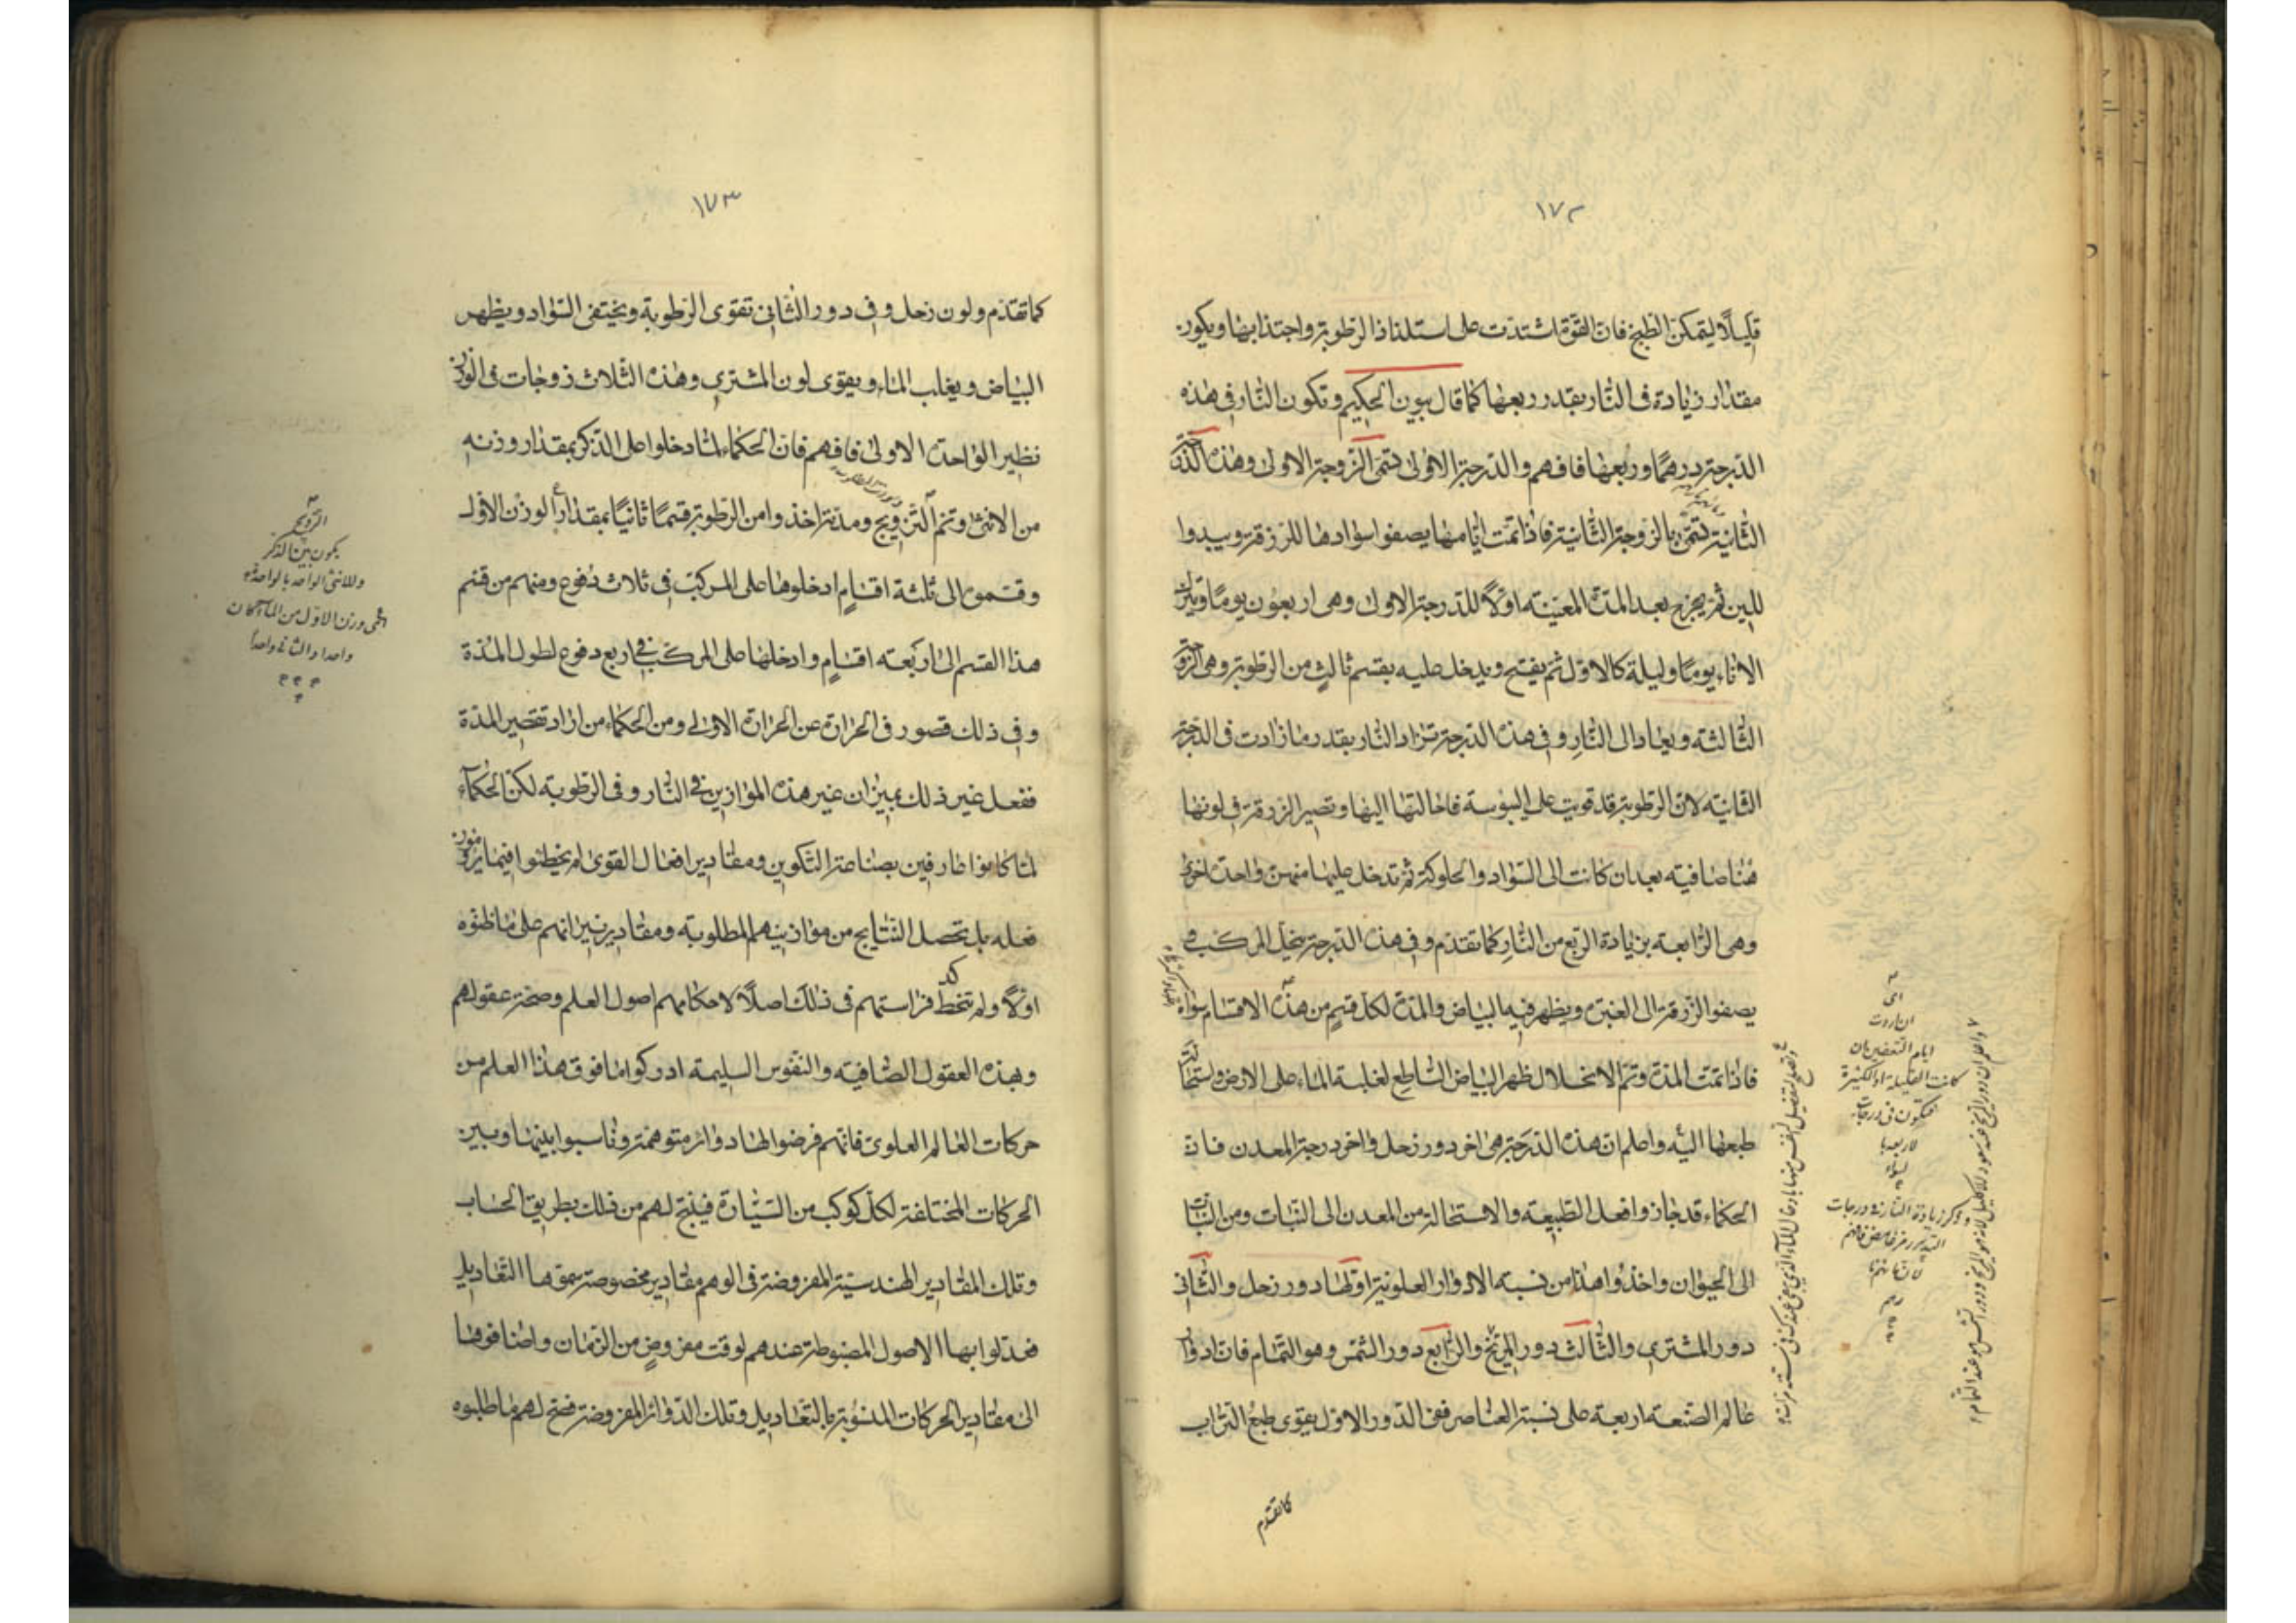 ١٧٢
قليلًا ليتمكن الطبخ فان القوة اشتدت على استلذاذ الرطوبة واجتذابها ويكون
مقدار زيادة في النار بقدر ربعها كما قال بيون الحكيم وتكون النار في هذه
الدرجة درهمًا وربعها فافهم والدرجة الاولى تسمى الزوجة الاولى وهذه الدرجة
الثانية تسمى بالزوجة الثانية فاذا تمت ايامها يصفوا سوادها للزرقة ويبدوا
للبين ثم يخرج بعد المدة المعينة اولًا للدرجة الاولى وهي اربعون يومًا ويترك
الاناء يومًا وليلة كالاول ثم يفتح ويدخل عليه بقسم ثالث من الرطوبة وهي الزوجة
الثالثة ويعاد الى النار وفي هذه الدرجة تزاد النار بقدر ما زادت في الدرجة
الثانية لان الرطوبة قد قويت على اليبوسة فاحالتها اليها وتصير الزرقة في لونها
هنا صافية بعد ان كانت الى السواد والحلوكة ثم تدخل عليها منهن واحدة اخرى
وهي الرابعة بزيادة الربع من النار كما تقدم وفي هذه الدرجة ينحل المركب و
يصفوا الزرقة الى الغبرة ويظهر فيه البياض والمدة لكل قسم من هذه الاقسام سواء
فاذا تمت المدة وتم الانحلال ظهر البياض الساطع لغلبة الماء على الارض واستحالة
طبعها اليه واعلم ان هذه الدرجة هي اخر دور زحل واخر درجة المعدن فان
الحكماء قد جازوا فعل الطبيعة والاستحالة من المعدن الى النبات ومن النبات
الى الحيوان واخذوا هذا من نسبة الادوار العلوية اولها دور زحل والثاني
دور المشتري والثالث دور المريخ والرابع دور الشمس وهو التمام فان ادوار
عالم الصنعة اربعة على نسبة العناصر ففي الدور الاول يقوى طبع التراب
كما تقدم
اى
ان اردت
ايام التعفين ان
كانت القليلة او الكثيرة
فتكون في درجات
لاربعها
سواء
وذكر زيادة النار في درجات
١٧٣
كما تقدم ولون زحل وفي دور الثاني تقوى الرطوبة ويختفى السواد ويظهر
البياض ويغلب الماء ويقوى لون المشتري وهذه الثلاث زوجات في الوزن
نظير الواحدة الاولى فافهم فان الحكماء لما دخلوا على الذكر بمقدار وزنه
من الانثى وتم التزويج ومدته اخذوا من الرطوبة قسمًا ثانيًا بمقدار الوزن الاول
وقسموه الى ثلثة اقسام ادخلوها على المركب في ثلاث دفوع ومنهم من قسم
هذا القسم الى اربعة اقسام وادخلها على المركب في اربع دفوع لطول المدة
وفي ذلك قصور في الحرارة عن الحرارة الاولى ومن الحكماء من اراد تقصير المدة
ففعل غير ذلك بميزان غير هذه الموازين في النار وفي الرطوبة لكن الحكماء
لما كانوا عارفين بصناعة التكوين ومقادير افعال القوى لم يخطئوا فيما يرومون
فعله بل تحصل النتايج من موازينهم المطلوبة ومقادير نيرانهم على ما ظنوه
اولًا ولم تخط فراستهم في ذلك اصلًا لاحكامهم اصول العلم وصحة عقولهم
وبهذه العقول الصافية والنفوس السليمة ادركوا ما فوق هذا العلم من
حركات العالم العلوى فانهم فرضوا لها دوائر متوهمة وناسبوا بينها وبين
الحركات المختلفة لكل كوكب من السيارة فينتج لهم من ذلك بطريق الحساب
وتلك المقادير الهندسية المفروضة في الوهم مقادير مخصوصة سموها التعاديل
فعدلوا بها الاصول المضبوطة عندهم لوقت مفروض من الزمان واضافوها
الى مقادير الحركات المنسوبة بالتعاديل وتلك الدوائر المفروضة فصح لهم ما طلبوه
التزويج
يكون بين الذكر
والانثى الواحد بالواحدة
وزن الاول من الماء كان
واحدا والثاني واحدا